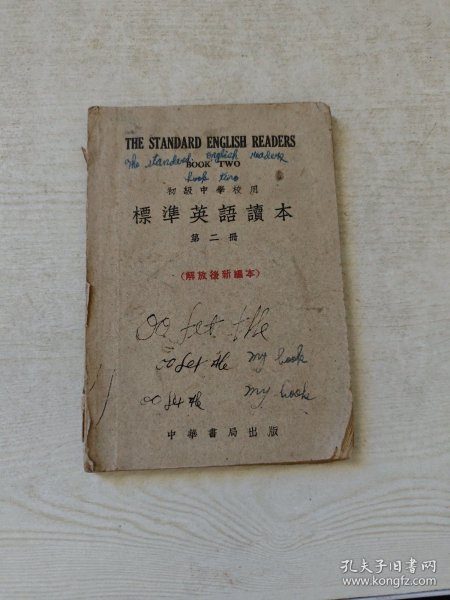 THE STANDARD ENGLISH READERS
BOOK TWO
The standard English readers
book two
初級中學校用
標準英語讀本
第二冊
(解放後新編本)
my book
my book
中華書局出版
孔夫子旧书网
www.kongfz.com